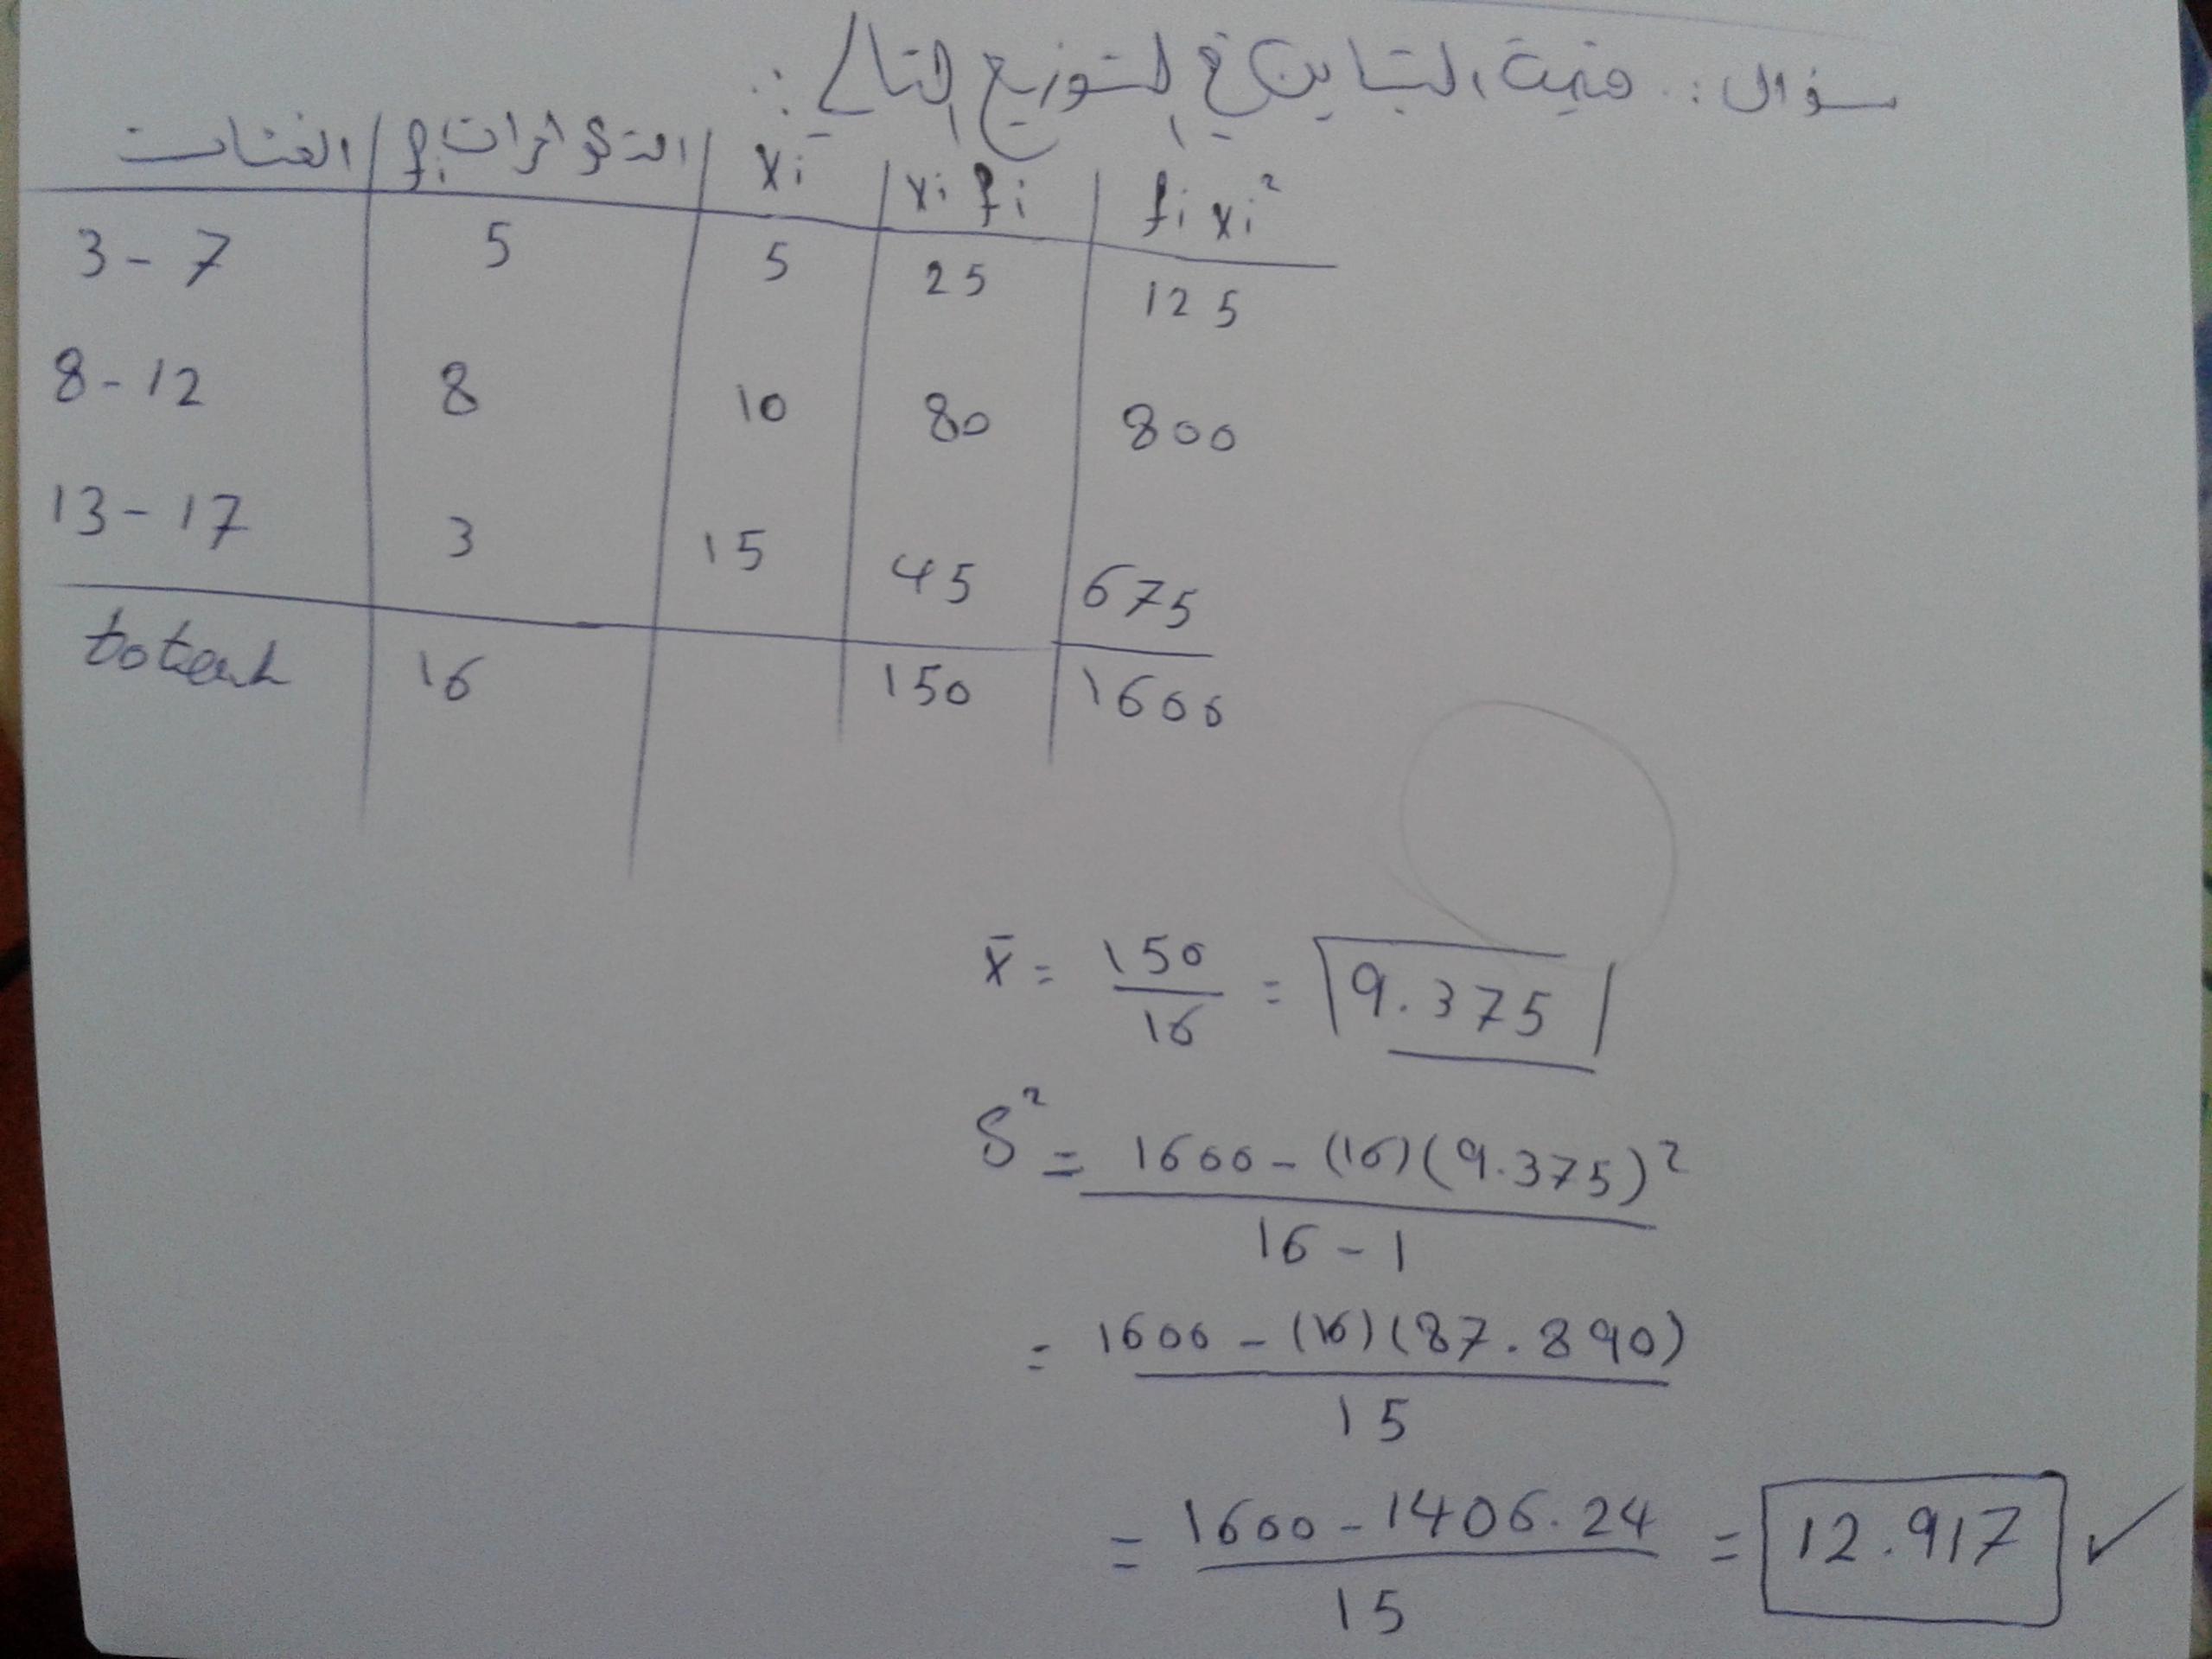 سؤال: قيمة التباين في التوزيع التالي:
الفئات | التكرارات fi | xi | xi fi | fi xi²
3 - 7 | 5 | 5 | 25 | 125
8 - 12 | 8 | 10 | 80 | 800
13 - 17 | 3 | 15 | 45 | 675
total | 16 | | 150 | 1600
x̄ = 150/16 = 9.375
S² = 1600 - (16)(9.375)² / 16 - 1
= 1600 - (16)(87.890) / 15
= 1600 - 1406.24 / 15 = 12.917 ✓